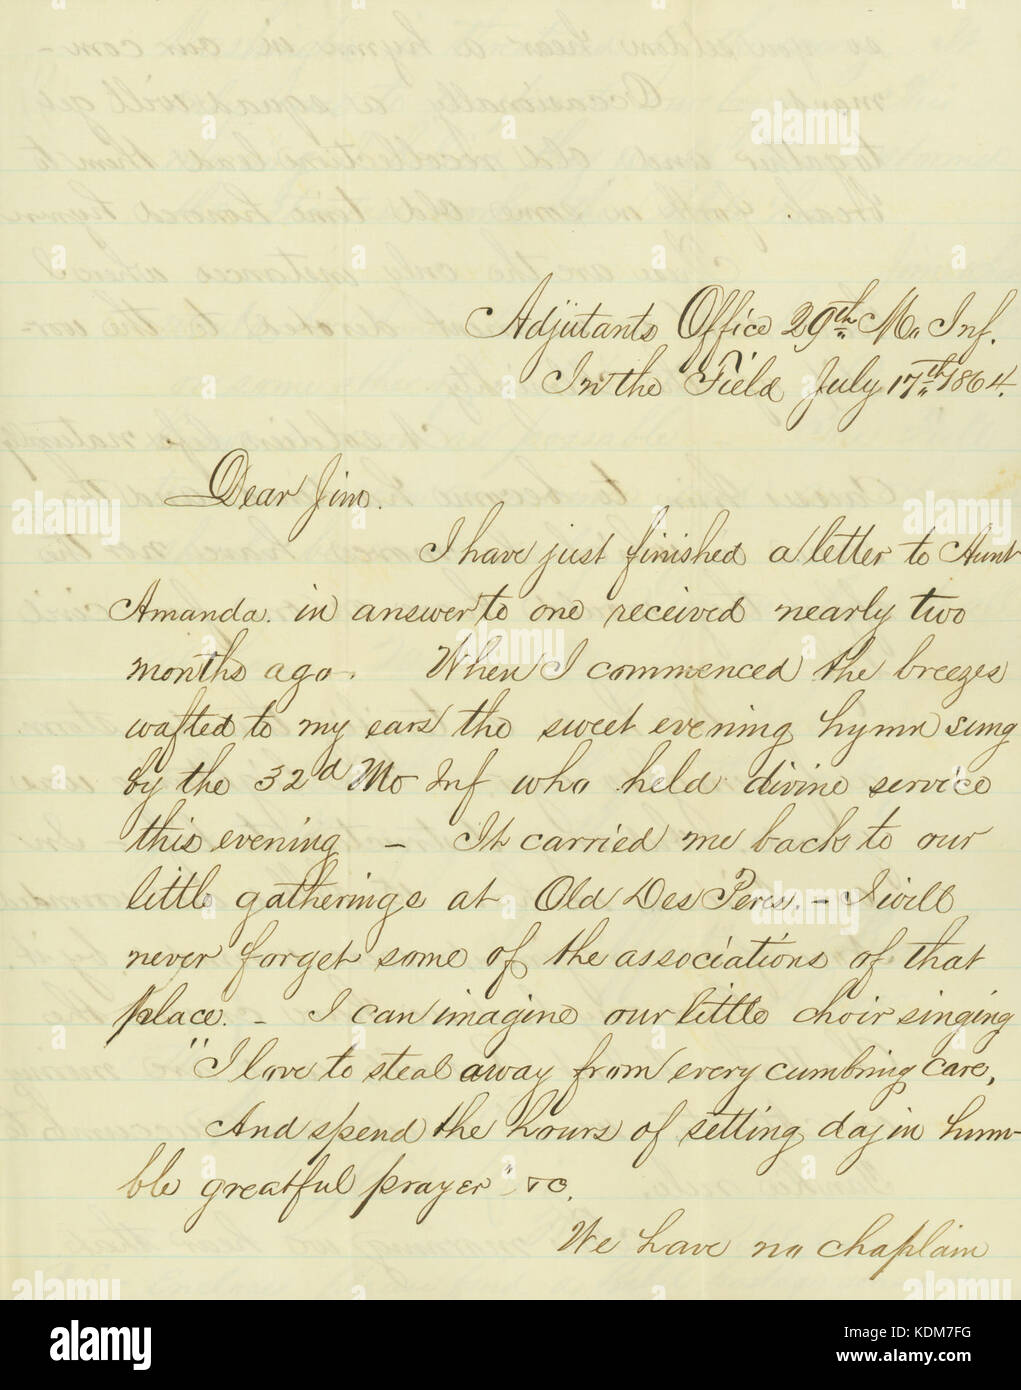 Adjutants Office 29th Mo Inf.
In the Field July 17th 1864.
Dear Jim.
I have just finished a letter to Aunt
Amanda. in answer to one received nearly two
months ago. When I commenced the breezes
wafted to my ears the sweet evening hymn sung
by the 32d Mo Inf who held divine service
this evening – It carried me back to our
little gatherings at Old Des Peres. – I will
never forget some of the associations of that
place. – I can imagine our little choir singing
"I love to steal away from every cumbring care,
And spend the hours of setting day in hum-
ble greatful prayer" &c.
We have no chaplain
alamy
Image ID: KDM7FG
www.alamy.com